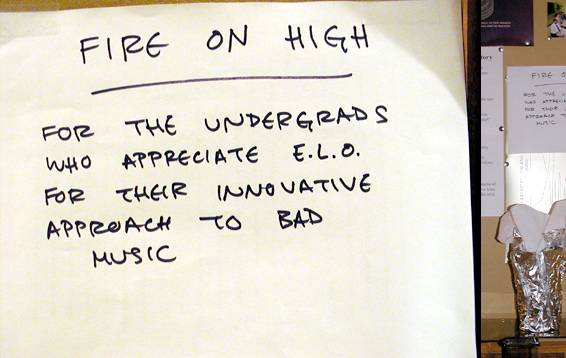 FIRE ON HIGH
FOR THE UNDERGRADS
WHO APPRECIATE E.L.O.
FOR THEIR INNOVATIVE
APPROACH TO BAD
MUSIC
FIRE O
FOR THE U
WHO APPRECIA
FOR THEIR
APPROACH T
MUSIC